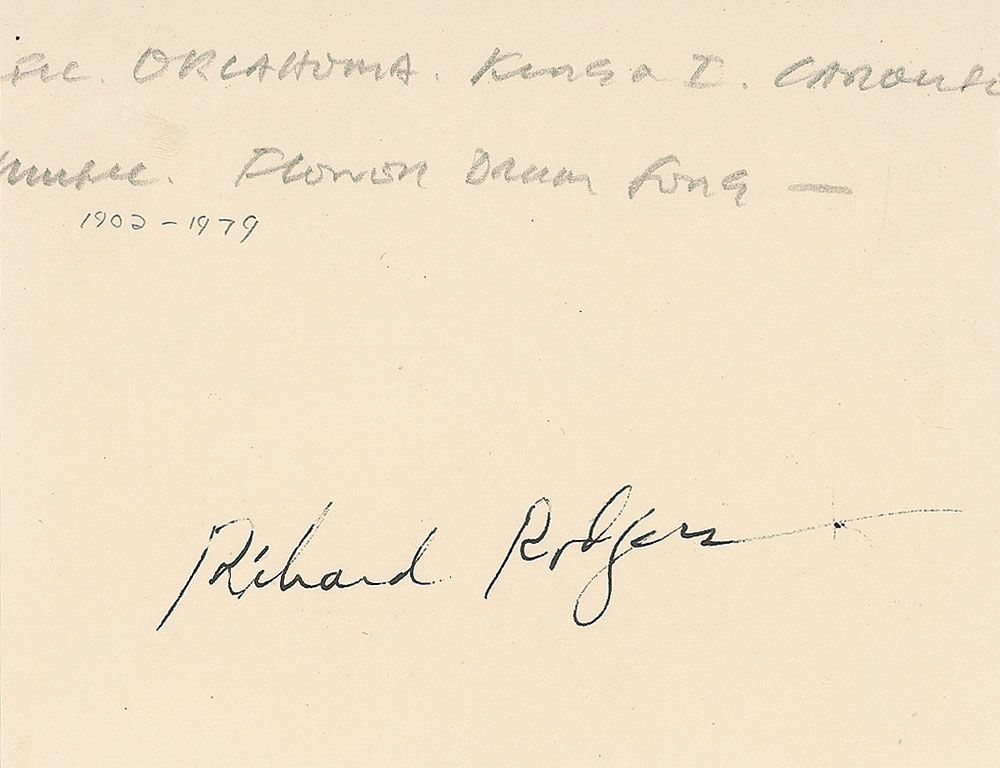 OKLAHOMA. King & I. CAROUSE
Flower Drum Song —
1902-1979
Richard Rodgers